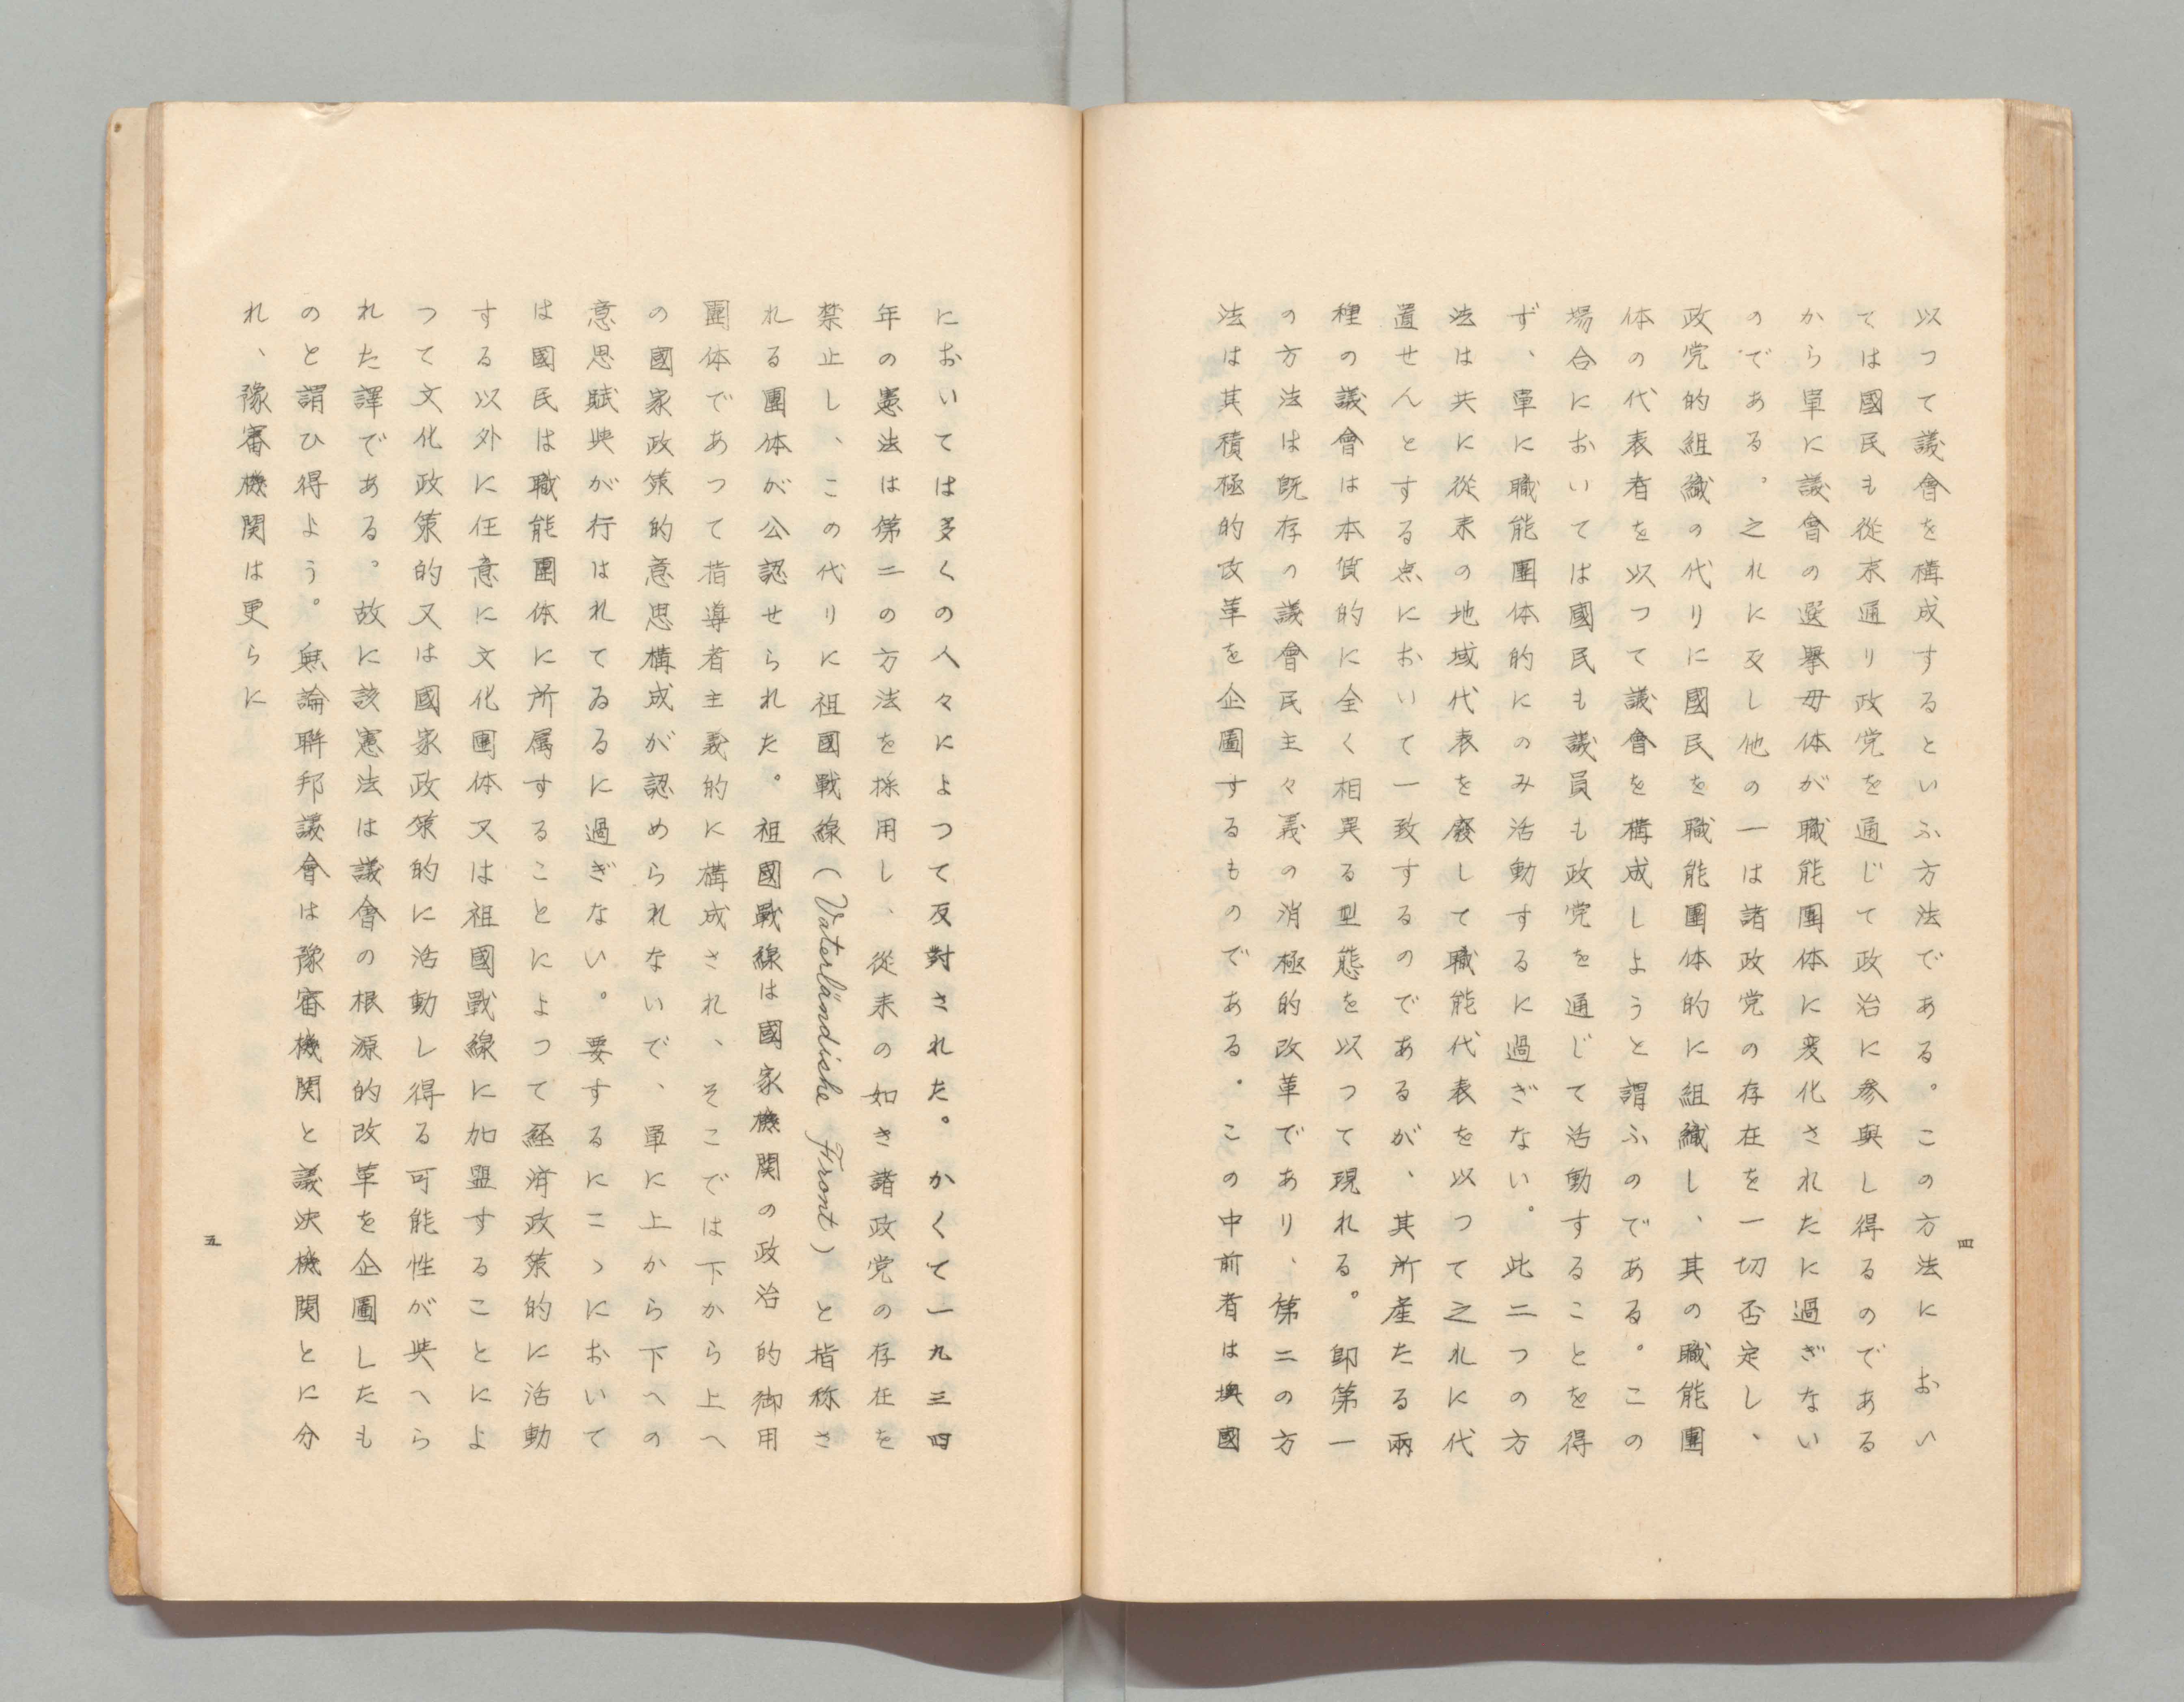 以つて議會を構成するといふ方法である。この方法におい
ては國民も從来通り政党を通じて政治に参與し得るのである
から單に議會の選擧母体が職能團体に変化されたに過ぎない
のである。之れに反し他の一は諸政党の存在を一切否定し、
政党的組織の代りに國民を職能團体的に組織し、其の職能團
体の代表者を以つて議會を構成しようと謂ふのである。この
場合においては國民も議員も政党を通じて活動することを得
ず、單に職能團体的にのみ活動するに過ぎない。此二つの方
法は共に從来の地域代表を廢して職能代表を以つて之れに代
置せんとする点において一致するのであるが、其所産たる兩
種の議會は本質的に全く相異る型態を以つて現れる。卽第一
の方法は既存の議會民主々義の消極的改革であり、第二の方
法は其積極的改革を企圖するものである。この中前者は墺國
四
においては多くの人々によつて反對された。かくて一九三四
年の憲法は第二の方法を採用し、從来の如き諸政党の存在を
禁止し、この代りに祖國戰線(Vaterländishe Front)と指称さ
れる團体が公認せられた。祖國戰線は國家機関の政治的御用
團体であつて指導者主義的に構成され、そこでは下から上へ
の國家政策的意思構成が認められないで、單に上から下への
意思賦與が行はれてゐるに過ぎない。要するにこゝにおいて
は國民は職能團体に所属することによつて経済政策的に活動
する以外に任意に文化團体又は祖國戰線に加盟することによ
つて文化政策的又は國家政策的に活動し得る可能性が與へら
れた譯である。故に該憲法は議會の根源的改革を企圖したも
のと謂ひ得よう。無論聯邦議會は豫審機関と議決機関とに分
れ、豫審機関は更らに
五